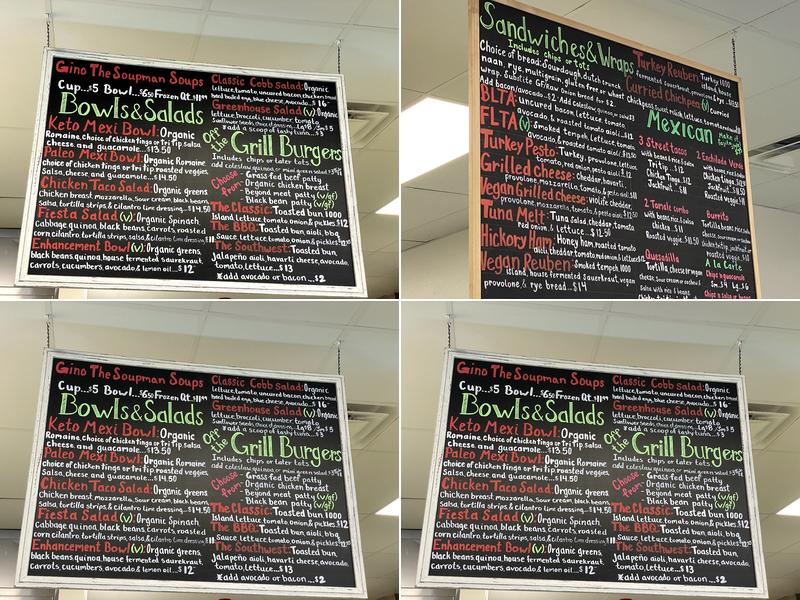 Gino The Soupman Soups
Cup...$5 Bowl...$6.50 Frozen Qt. $11.99
Bowls & Salads
Keto Mexi Bowl: Organic
Romaine, Choice of chicken tinga or Tri Tip, salsa,
Cheese and guacamole...$13.50
Paleo Mexi Bowl: Organic Romaine
choice of chicken tinga or tri tip, roasted veggies,
Salsa, cheese and guacamole...$14.50
Chicken Taco Salad: Organic greens
Chicken breast, mozzarella, sour cream, black beans,
Salsa, tortilla strips & cilantro lime dressing...$14.50
Fiesta Salad (V): Organic Spinach
Cabbage, quinoa, black beans, carrots, roasted
corn cilantro, tortilla strips, salsa & cilantro lime dressing
Enhancement Bowl (V): Organic greens
black beans, quinoa, house fermented saurekraut,
Carrots, cucumbers, avocado & lemon oil...$12
Classic Cobb Salad: Organic
lettuce, tomato, uncured bacon, chicken breast,
hard boiled egg, blue cheese, Avocado..$16
Greenhouse Salad (V): Organic
lettuce, broccoli, cucumber, tomato
*add a scoop of tasty tuna...$3
Off the Grill Burgers
Includes chips or tater tots
Choose from:
Grass fed beef patty
Organic chicken breast
Beyond meat patty (v/gf)
Black bean patty (v/gf)
The Classic: Toasted bun, 1000
Island, lettuce, tomato, onion & pickles $12
The BBQ: Toasted bun, aioli, bbq
Sauce, lettuce, tomato, onion & pickles
The Southwest: Toasted bun,
Jalapeño aioli, havarti cheese, avocado,
tomato, lettuce...$13
*add avocado or bacon...$2
Sandwiches & Wraps
Includes chips or tots
Choice of bread: Sourdough, dutch crunch,
naan, rye, multigrain, gluten free, or wheat
wrap. Substitute GF/Raw Onion bread for $2.
BLTA: uncured bacon, lettuce, tomato,
FLTA (V): Smoked tempeh, lettuce, tomato,
Turkey Pesto: Turkey, provolone, lettuce
Grilled Cheese: cheddar, havarti,
provolone, mozzarella, tomato & pesto aioli
Vegan Grilled Cheese: violife cheddar,
Tuna Melt: Tuna salad, cheddar, tomato,
red onion, & lettuce...$12.50
Hickory Ham: Honey ham, roasted tomato
Vegan Reuben: Smoked tempeh, 1000
island, house fermented saurekraut, vegan
provolone, & rye bread...$14
Turkey Reuben: Turkey, 1000
Curried Chickpea (V): Curried
Mexican
3 Street tacos
Tri tip...$12
Chicken...$11
Jackfruit...$11
2 Tamale combo
with beans, rice & salsa
chicken...$11
Roasted veggie..$10.50
Quesadilla
2 Enchilada Verde
Burrito
A la Carte
Chips & guacamole
Gino The Soupman Soups
Cup...$5 Bowl...$6.50 Frozen Qt. $11.99
Bowls & Salads
Keto Mexi Bowl: Organic
Romaine, Choice of chicken tinga or Tri Tip, salsa,
Cheese and guacamole...$13.50
Paleo Mexi Bowl: Organic Romaine
choice of chicken tinga or tri tip, roasted veggies,
Salsa, cheese and guacamole...$14.50
Chicken Taco Salad: Organic greens
Chicken breast, mozzarella, sour cream, black beans,
Salsa, tortilla strips & cilantro lime dressing...$14.50
Fiesta Salad (V): Organic Spinach
Cabbage, quinoa, black beans, carrots, roasted
corn cilantro, tortilla strips, salsa & cilantro lime dressing..$11
Enhancement Bowl (V): Organic greens,
black beans, quinoa, house fermented saurekraut,
Carrots, cucumbers, avocado & lemon oil...$12
Classic Cobb Salad: Organic
lettuce, tomato, uncured bacon, chicken breast,
hard boiled egg, blue cheese, Avocado..$16
Greenhouse Salad (V): Organic
lettuce, broccoli, cucumber, tomato
*add a scoop of tasty tuna...$3
Off the Grill Burgers
Includes chips or tater tots
Choose from:
Grass fed beef patty
Organic chicken breast
Beyond meat patty (v/gf)
Black bean patty (v/gf)
The Classic: Toasted bun, 1000
Island, lettuce, tomato, onion & pickles $12
The BBQ: Toasted bun, aioli, bbq
Sauce, lettuce, tomato, onion & pickles
The Southwest: Toasted bun,
Jalapeño aioli, havarti cheese, avocado,
tomato, lettuce...$13
*add avocado or bacon...$2
Gino The Soupman Soups
Cup...$5 Bowl...$6.50 Frozen Qt. $11.99
Bowls & Salads
Keto Mexi Bowl: Organic
Romaine, Choice of chicken tinga or Tri Tip, salsa,
Cheese and guacamole...$13.50
Paleo Mexi Bowl: Organic Romaine
choice of chicken tinga or tri tip, roasted veggies,
Salsa, cheese and guacamole...$14.50
Chicken Taco Salad: Organic greens
Chicken breast, mozzarella, sour cream, black beans,
Salsa, tortilla strips & cilantro lime dressing...$14.50
Fiesta Salad (V): Organic Spinach
Cabbage, quinoa, black beans, carrots, roasted
corn cilantro, tortilla strips, salsa & cilantro lime dressing..$11
Enhancement Bowl (V): Organic greens,
black beans, quinoa, house fermented saurekraut,
Carrots, cucumbers, avocado & lemon oil...$12
Classic Cobb Salad: Organic
lettuce, tomato, uncured bacon, chicken breast,
hard boiled egg, blue cheese, Avocado..$16
Greenhouse Salad (V): Organic
lettuce, broccoli, cucumber, tomato
*add a scoop of tasty tuna...$3
Off the Grill Burgers
Includes chips or tater tots
Choose from:
Grass fed beef patty
Organic chicken breast
Beyond meat patty (v/gf)
Black bean patty (v/gf)
The Classic: Toasted bun, 1000
Island, lettuce, tomato, onion & pickles $12
The BBQ: Toasted bun, aioli, bbq
Sauce, lettuce, tomato, onion & pickles
The Southwest: Toasted bun,
Jalapeño aioli, havarti cheese, avocado,
tomato, lettuce...$13
*add avocado or bacon...$2